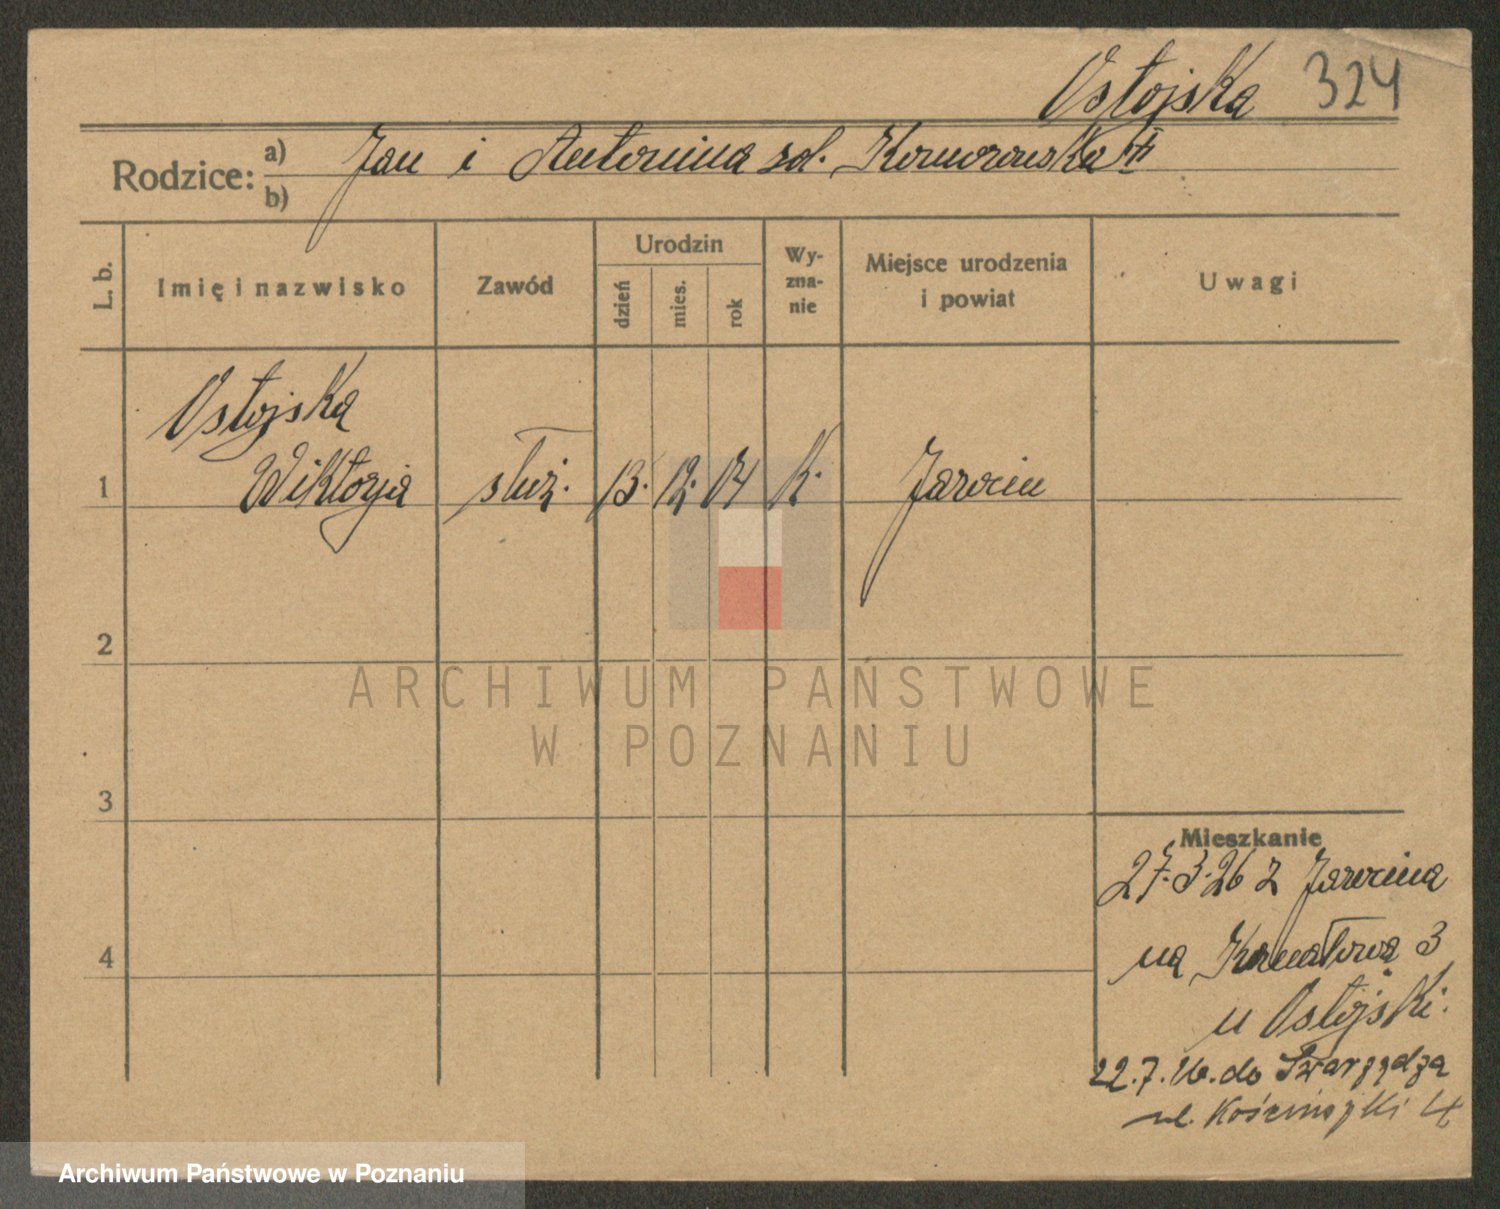 Ostojska 324
Rodzice: a) Jan i Antonina zd. Komorowska
b)
L. b.
Imię i nazwisko
Zawód
Urodzin
dzień
mies.
rok
Wy-
zna-
nie
Miejsce urodzenia
i powiat
Uwagi
Ostojska
1 Wiktorja służ. 13. 12. 04 k. Jarocin
2
3
4
Mieszkanie
27.3.26 z Jarocina
na 3
u Ostojski.
22.7.26. do Swarzędza
ul. Kościuszki 4
ARCHIWUM PAŃSTWOWE
W POZNANIU
Archiwum Państwowe w Poznaniu